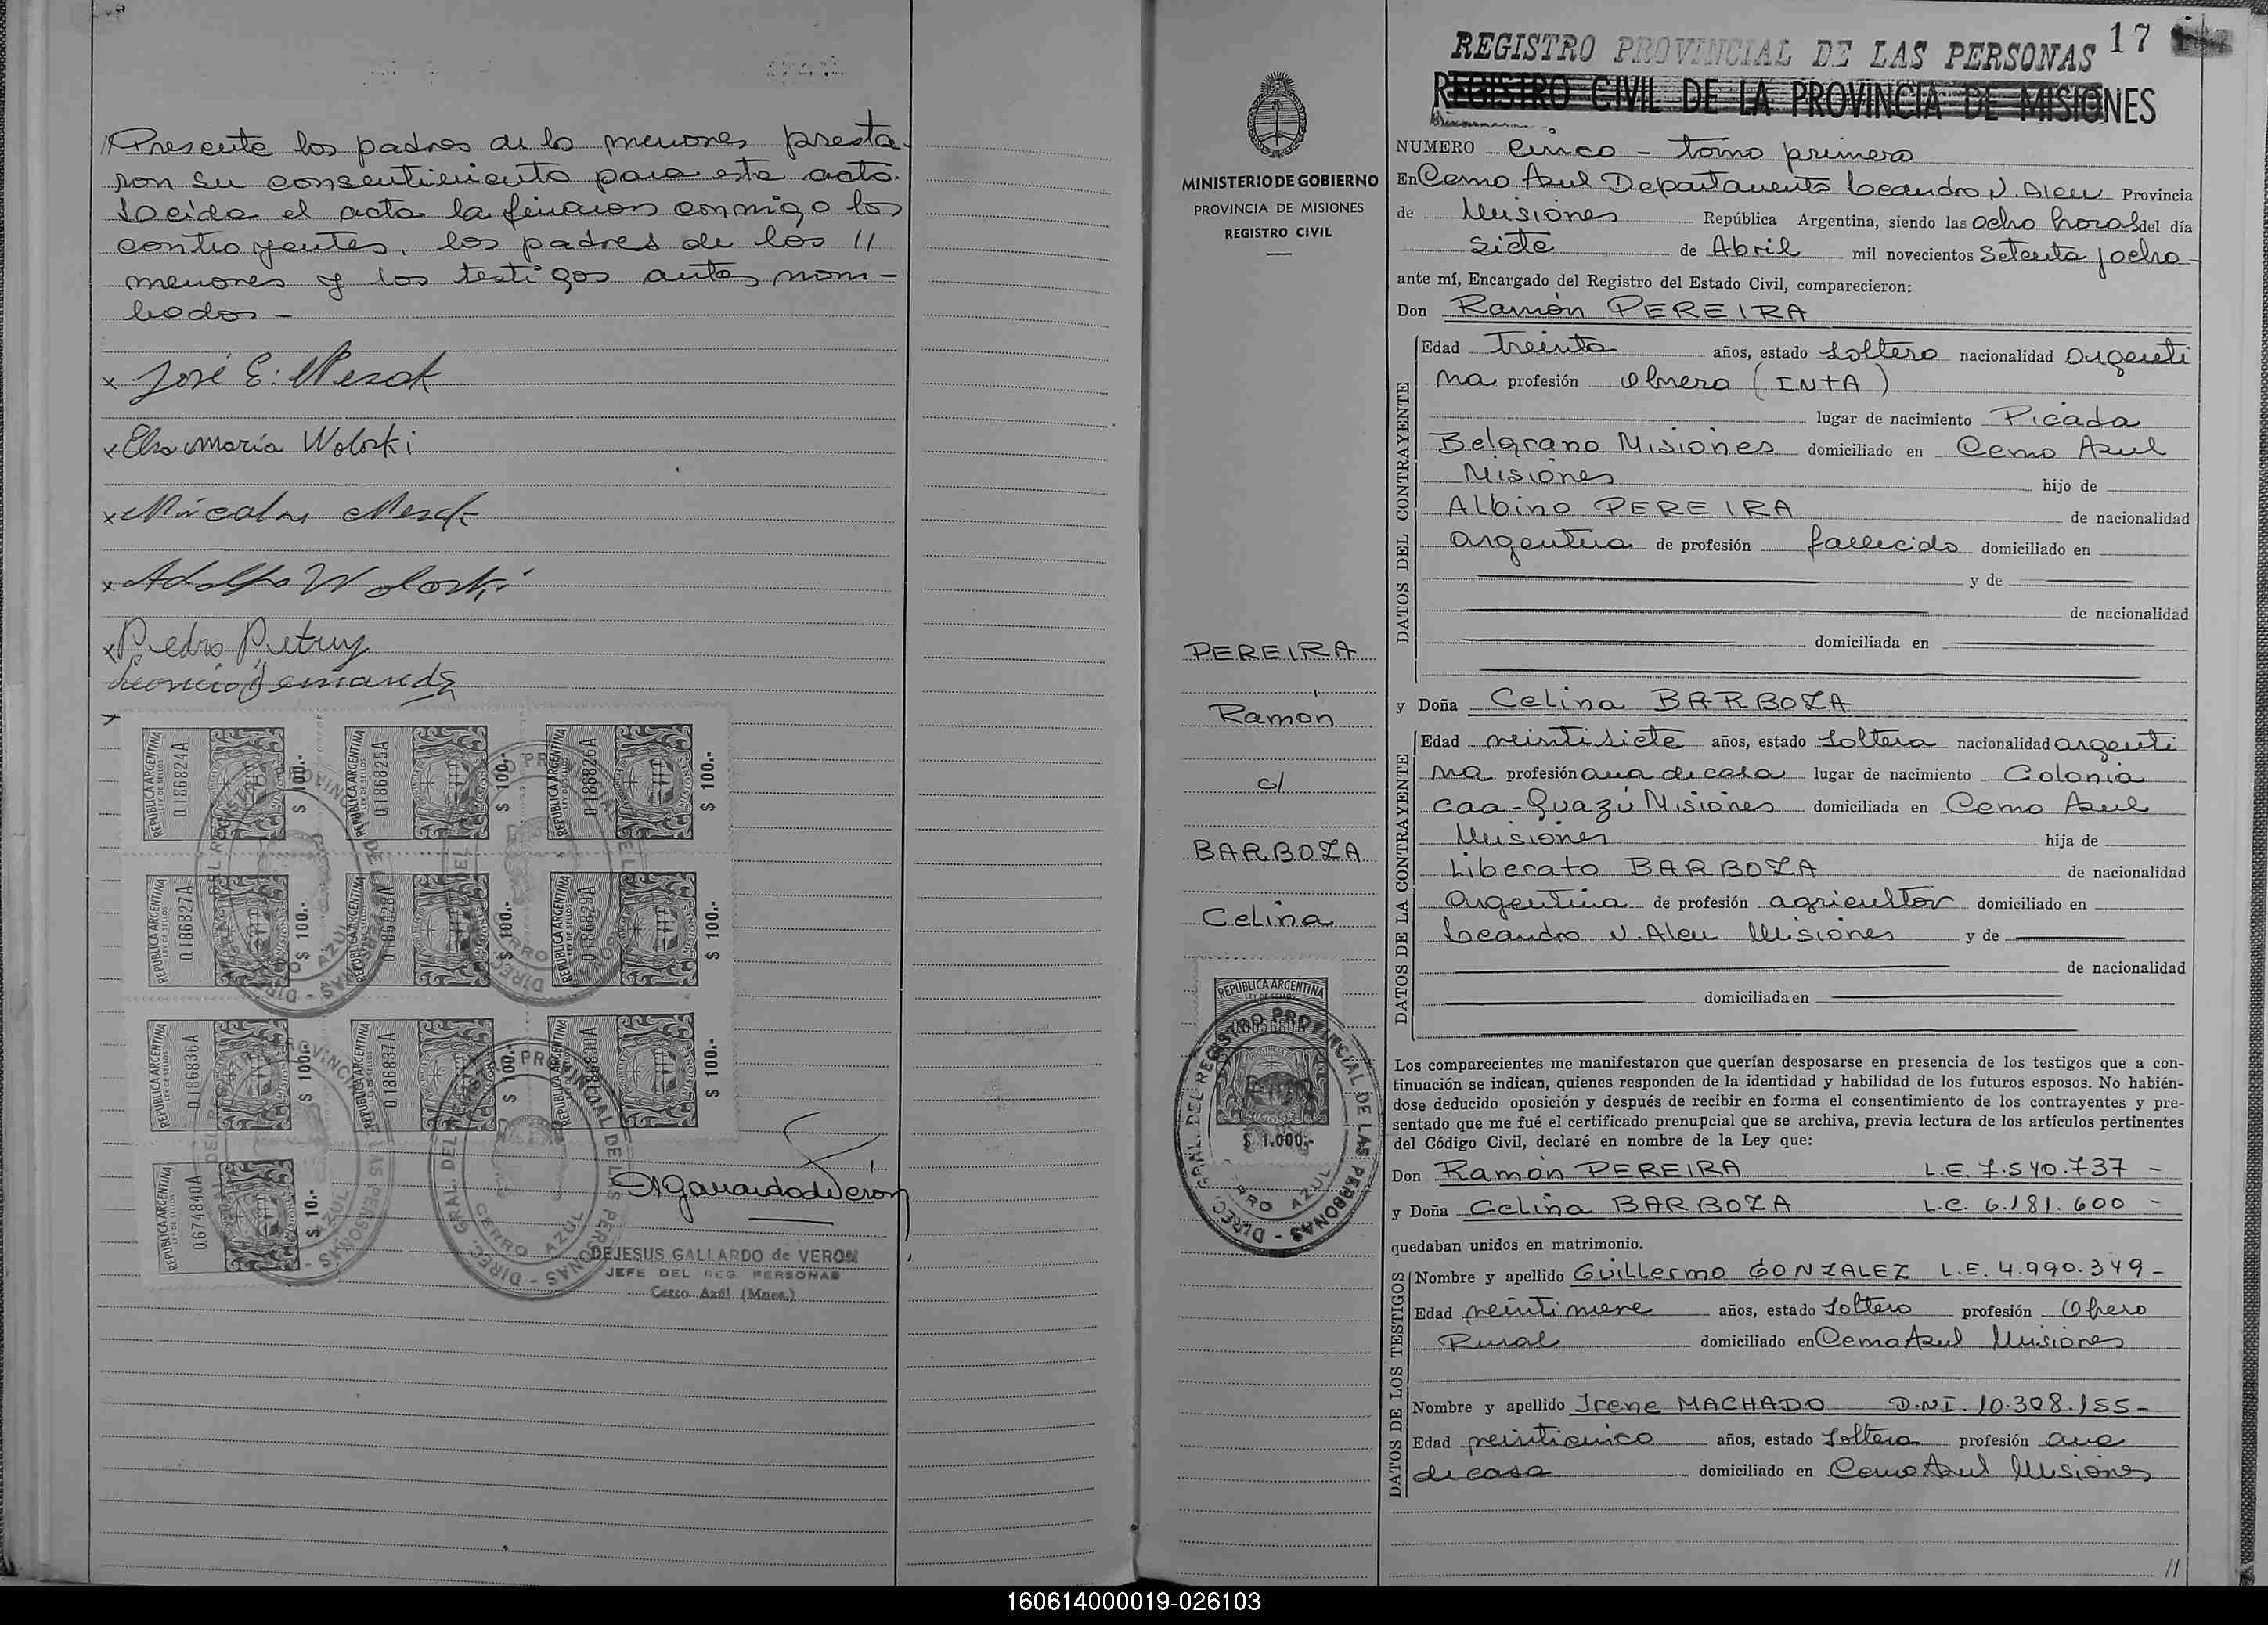 Presente los padres de lo menores presta-
ron su consentimiento para este acto.
Leida el acta la firmaron conmigo los
contrayentes, los padres de los //
menores y los testigos antes nom-
brados -
x José E.
x Elsa María Woloski
x
x Adolfo Woloski
x Pedro Pietruy
REPUBLICA ARGENTINA
LEY DE SELLOS
0186824A
$ 100.-
REPUBLICA ARGENTINA
LEY DE SELLOS
0186825A
$ 100.-
REPUBLICA ARGENTINA
LEY DE SELLOS
0186826A
$ 100.-
REPUBLICA ARGENTINA
LEY DE SELLOS
0186827A
$ 100.-
REPUBLICA ARGENTINA
0186828A
$ 100.-
REPUBLICA ARGENTINA
0186829A
$ 100.-
REPUBLICA ARGENTINA
LEY DE SELLOS
0186836A
$ 100.-
REPUBLICA ARGENTINA
LEY DE SELLOS
0186837A
$ 100.-
REPUBLICA ARGENTINA
0186830A
$ 100.-
REPUBLICA ARGENTINA
LEY DE SELLOS
0674840A
$ 10.-
DIREC. GRAL. DEL REGISTRO PROVINCIAL DE LAS PERSONAS -
CERRO AZUL
DEJESUS GALLARDO de VERON
JEFE DEL REG. PERSONAS
Cerro Azul (Mnes.)
17
REGISTRO PROVINCIAL DE LAS PERSONAS
REGISTRO CIVIL DE LA PROVINCIA DE MISIONES
MINISTERIO DE GOBIERNO
PROVINCIA DE MISIONES
REGISTRO CIVIL
PEREIRA
Ramón
c/
BARBOZA
Celina
REPUBLICA ARGENTINA
LEY DE SELLOS
$ 1.000.-
DIREC. GRAL. DEL REGISTRO PROVINCIAL DE LAS PERSONAS -
CERRO AZUL
NUMERO Cinco - tomo primero
En Cerro Azul Departamento Leandro N. Alem Provincia
de Misiones República Argentina, siendo las ocho horas del día
siete de Abril mil novecientos Setenta y ocho -
ante mí, Encargado del Registro del Estado Civil, comparecieron:
Don Ramón PEREIRA
DATOS DEL CONTRAYENTE
Edad Treinta años, estado Soltero nacionalidad argenti
na profesión Obrero (INTA)
lugar de nacimiento Picada
Belgrano Misiones domiciliado en Cerro Azul
Misiones hijo de
Albino PEREIRA de nacionalidad
argentina de profesión fallecido domiciliado en
y de
de nacionalidad
domiciliada en
y Doña Celina BARBOZA
DATOS DE LA CONTRAYENTE
Edad veintisiete años, estado Soltera nacionalidad argenti
na profesión ama de casa lugar de nacimiento Colonia
Caa-Guazú Misiones domiciliada en Cerro Azul
Misiones hija de
Liberato BARBOZA de nacionalidad
argentina de profesión agricultor domiciliado en
Leandro N. Alem Misiones y de
de nacionalidad
domiciliada en
Los comparecientes me manifestaron que querían desposarse en presencia de los testigos que a con-
tinuación se indican, quienes responden de la identidad y habilidad de los futuros esposos. No habién-
dose deducido oposición y después de recibir en forma el consentimiento de los contrayentes y pre-
sentado que me fué el certificado prenupcial que se archiva, previa lectura de los artículos pertinentes
del Código Civil, declaré en nombre de la Ley que:
Don Ramón PEREIRA L.E. 7.540.737 -
y Doña Celina BARBOZA L.C. 6.181.600 -
quedaban unidos en matrimonio.
DATOS DE LOS TESTIGOS
Nombre y apellido Guillermo GONZALEZ L.E. 4.990.349 -
Edad veintinueve años, estado Soltero profesión Obrero
Rural domiciliado en Cerro Azul Misiones
Nombre y apellido Irene MACHADO D.N.I. 10.308.155 -
Edad veinticinco años, estado Soltera profesión ama
de casa domiciliado en Cerro Azul Misiones
//
160614000019-026103